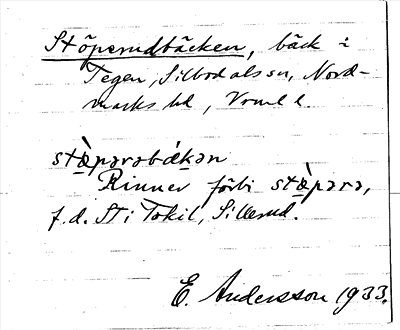 Stöperudbäcken, bäck i
Tegen, Silbodals sn, Nord-
marks hd, Vrml l.
stæ̀pərəbǽkən
Rinner förbi stæ̀pərə,
f.d. St i Tokil, Sillerud.
E. Andersson 1933.